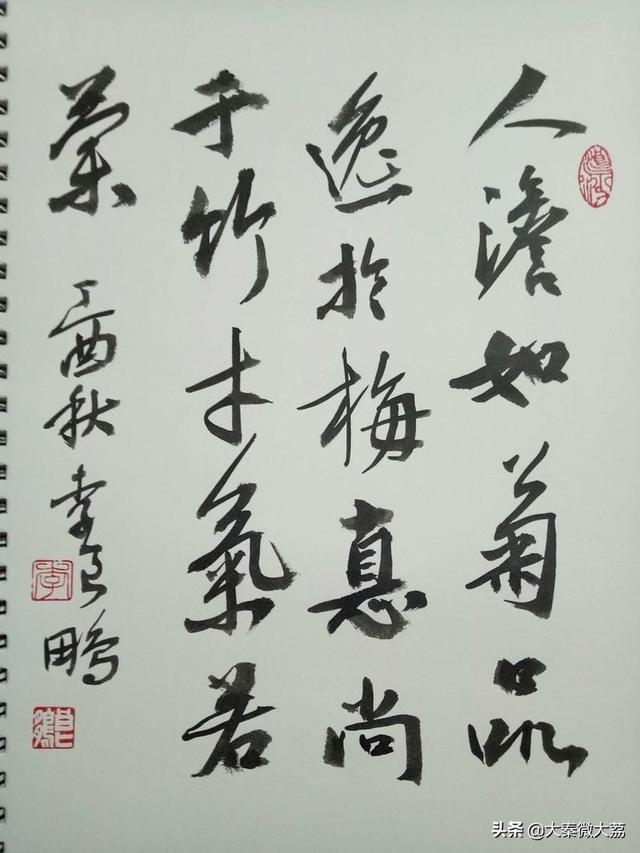 人澹如菊品
逸於梅悳尚
于竹才氣若
蘭 丁酉秋 李良鵬
李
头条 @大秦微大荔